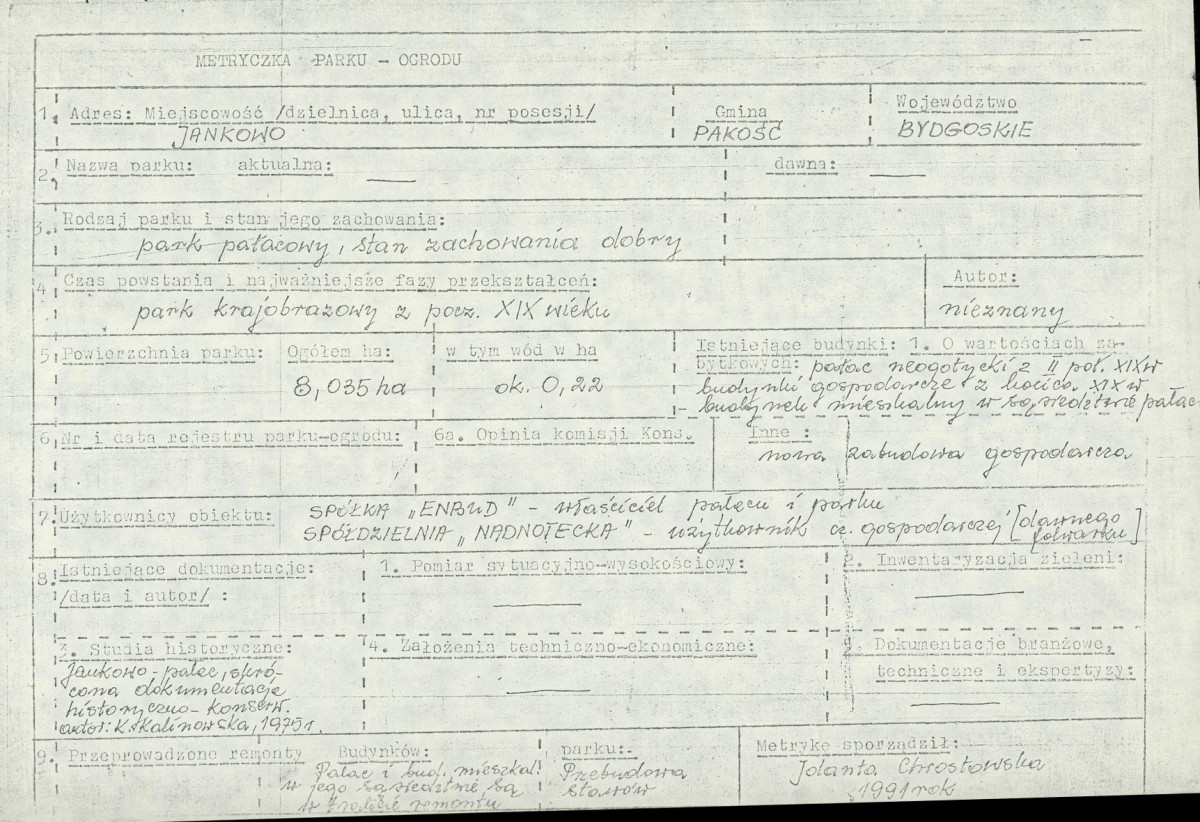 METRYCZKA PARKU - OGRODU
1. Adres: Miejscowość /dzielnica, ulica, nr posesji/
JANKOWO
Gmina
PAKOŚĆ
Województwo
BYDGOSKIE
2. Nazwa parku: aktualna: — dawna: —
3. Rodzaj parku i stan jego zachowania:
park pałacowy, stan zachowania dobry
4. Czas powstania i najważniejsze fazy przekształceń:
park krajobrazowy z pocz. XIX wieku
Autor:
nieznany
5. Powierzchnia parku: Ogółem ha:
8,035 ha
w tym wód w ha
ok. 0,22
Istniejące budynki: 1. O wartościach za-
bytkowych: pałac neogotycki z II poł. XIX w
budynki gospodarcze z końca XIX w
- budynek mieszkalny w sąsiedztwie pałac
6. Nr i data rejestru parku-ogrodu:
6a. Opinia komisji Kons.
Inne :
nowa zabudowa gospodarcza
7. Użytkownicy obiektu: SPÓŁKA „ENBUD" - właściciel pałacu i parku
SPÓŁDZIELNIA „NADNOTECKA" - użytkownik cz. gospodarczej [dawnego
folwarku]
8. Istniejące dokumentacje:
/data i autor/ :
1. Pomiar sytuacyjno-wysokościowy:
—
2. Inwentaryzacja zieleni:
—
3. Studia historyczne:
Jankowo - pałac, skró-
cona dokumentacja
historyczno-konserw.
autor: K. Kalinowska, 1975 r.
4. Założenia techniczno-ekonomiczne:
—
Dokumentacje branżowe,
techniczne i ekspertyzy:
—
9. Przeprowadzone remonty
Budynków:
Pałac i bud. mieszkal.
w jego sąsiedztwie są
w trakcie remontu
parku:
Przebudowa
stawów
Metrykę sporządził:
Jolanta Chrostowska
1991 rok